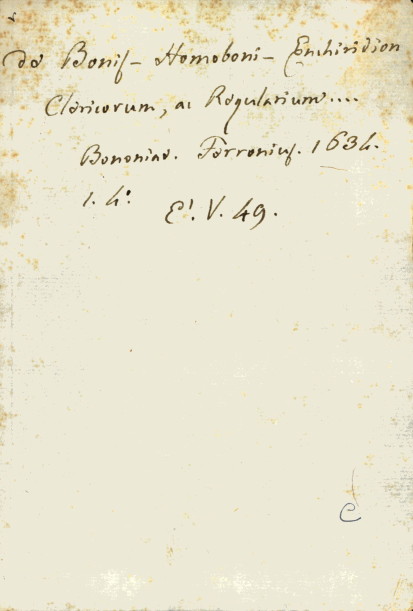 De Bonis - Homoboni - Enchiridion
Clericorum, ac Regularium....
Bononiae. Ferronius. 1634.
1. 4.°
E'. V. 49.
C